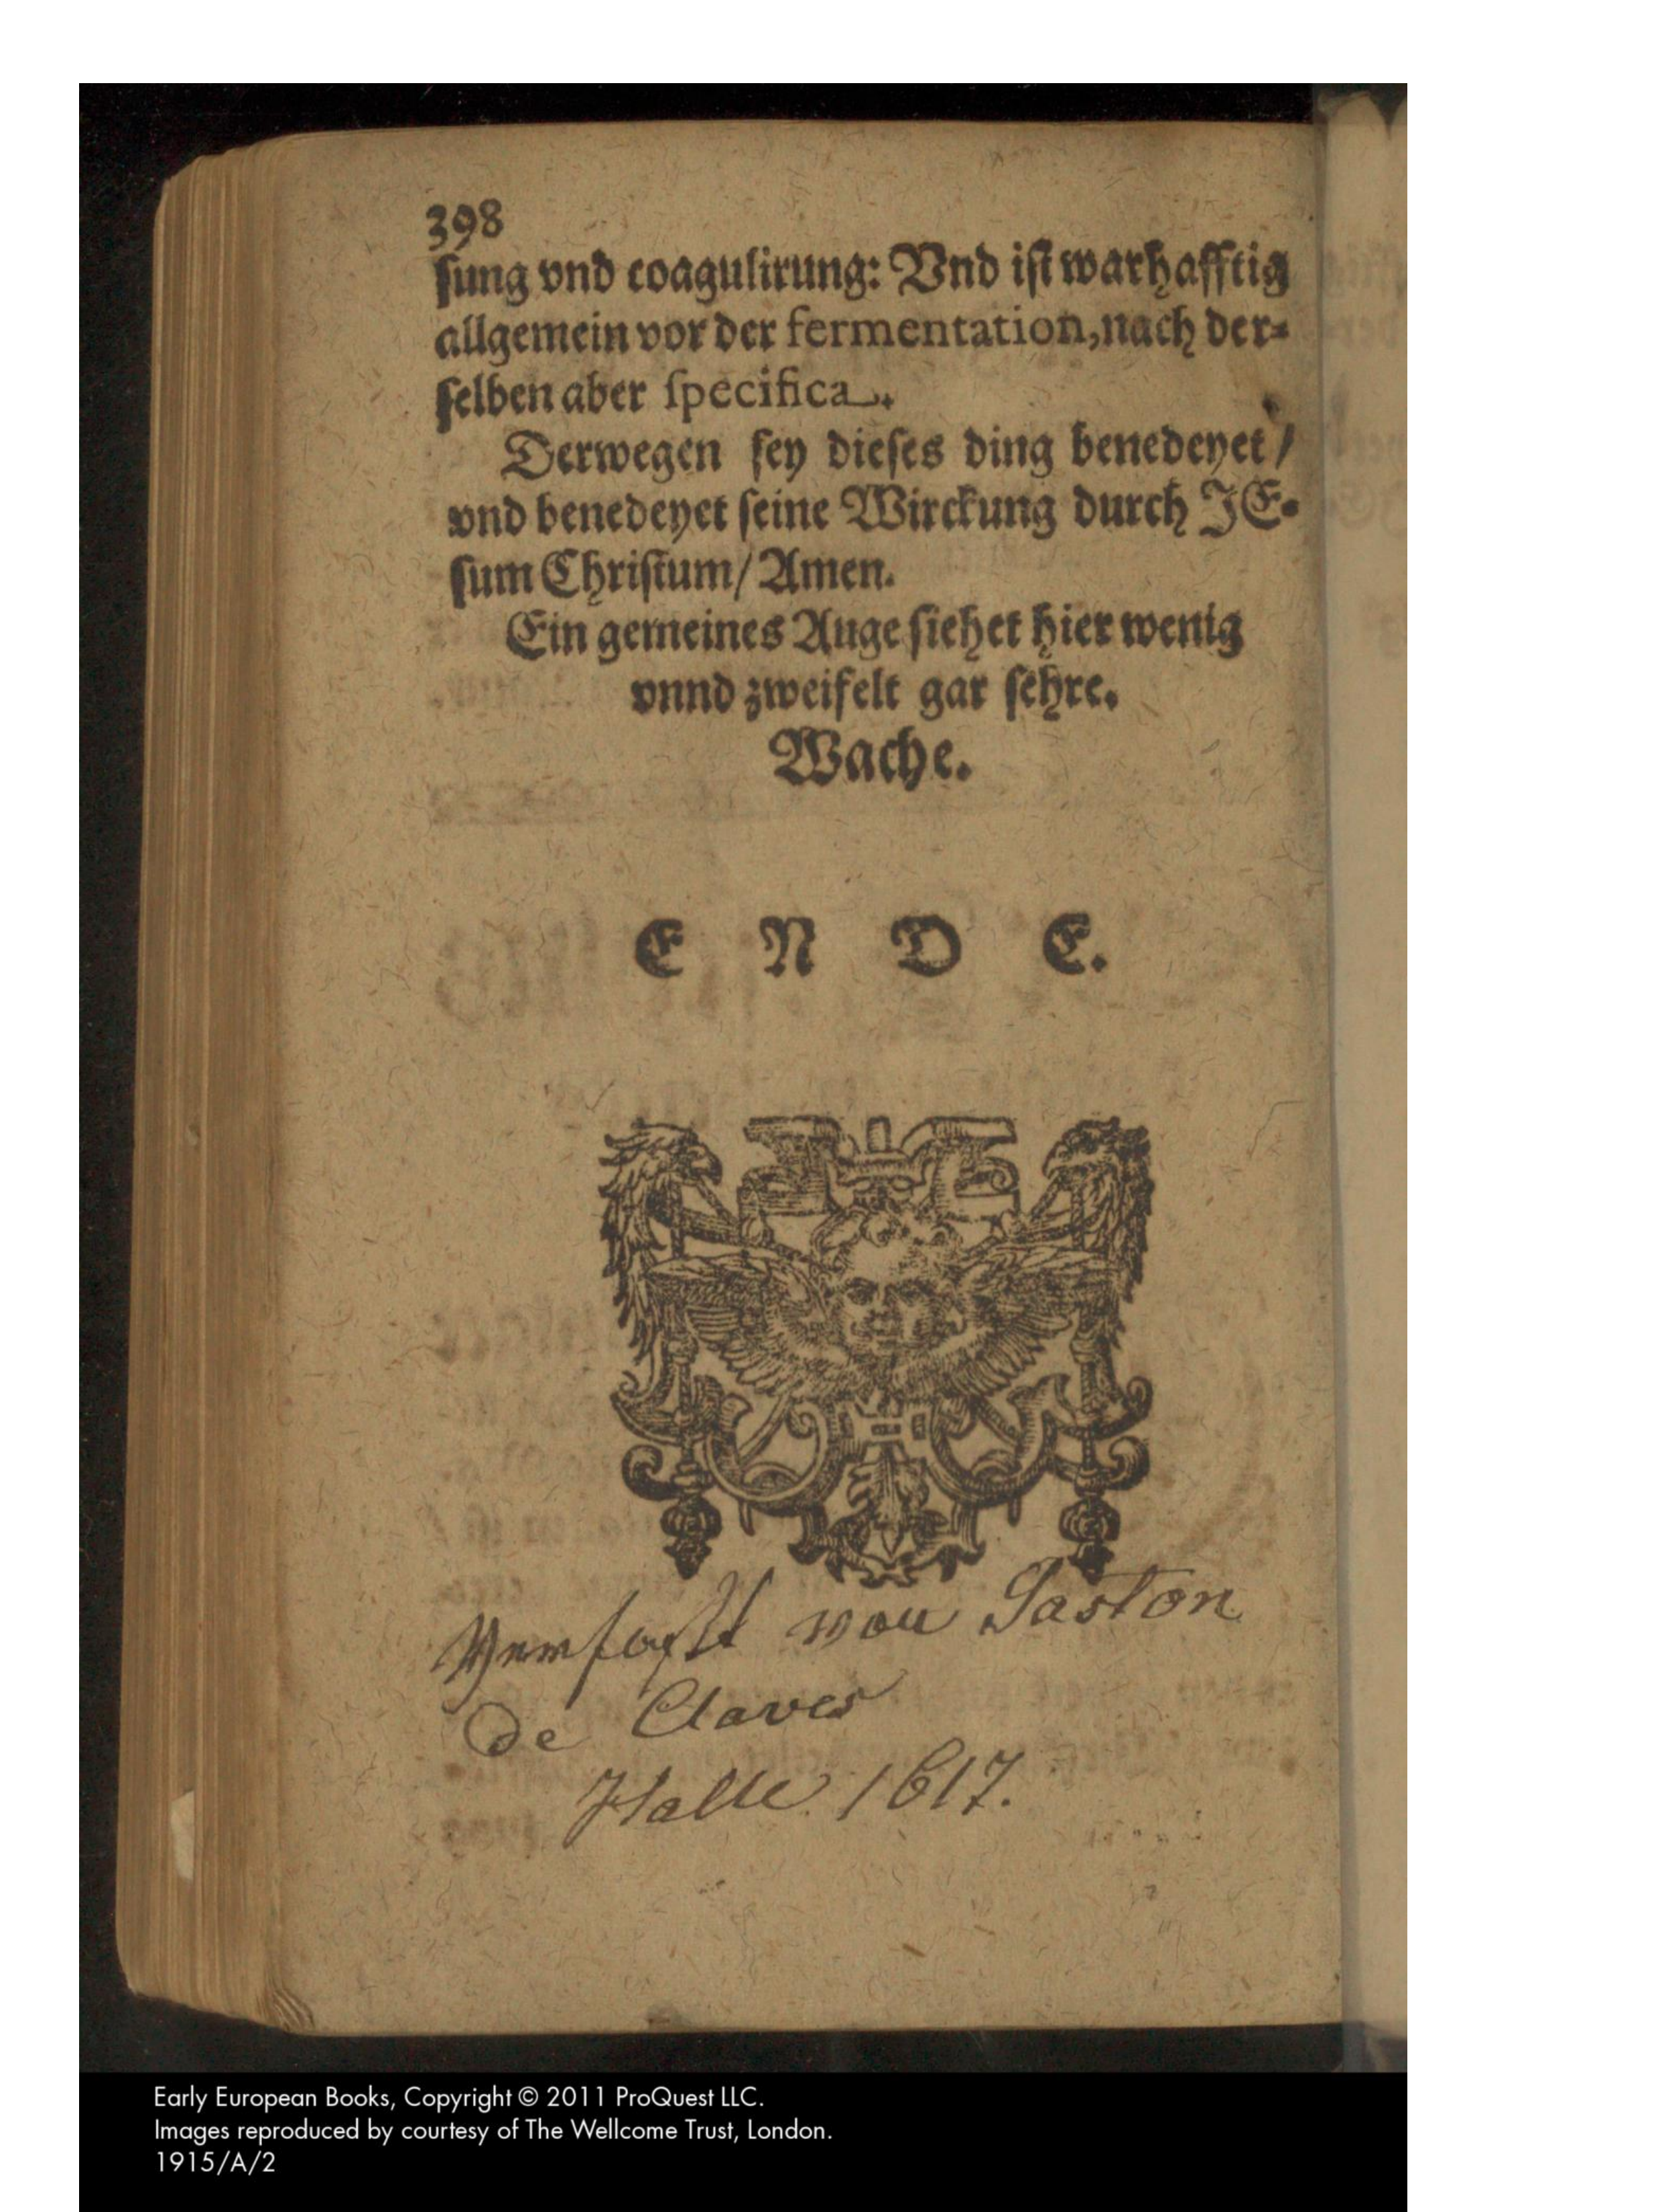 398
ſung vnd coagulirung: Vnd iſt warhafftig
allgemein vor der fermentation, nach der⸗
ſelben aber ſpecifica.
Derwegen ſey dieſes ding benedeyet /
vnd benedeyet ſeine Wirckung durch JE⸗
ſum Chriſtum / Amen.
Ein gemeines Auge ſiehet hier wenig
vnnd zweifelt gar ſehre.
Wache.
E N D E.
Verfaſst von Gaston
de Claves
Halle. 1617.
Early European Books, Copyright © 2011 ProQuest LLC.
Images reproduced by courtesy of The Wellcome Trust, London.
1915/A/2